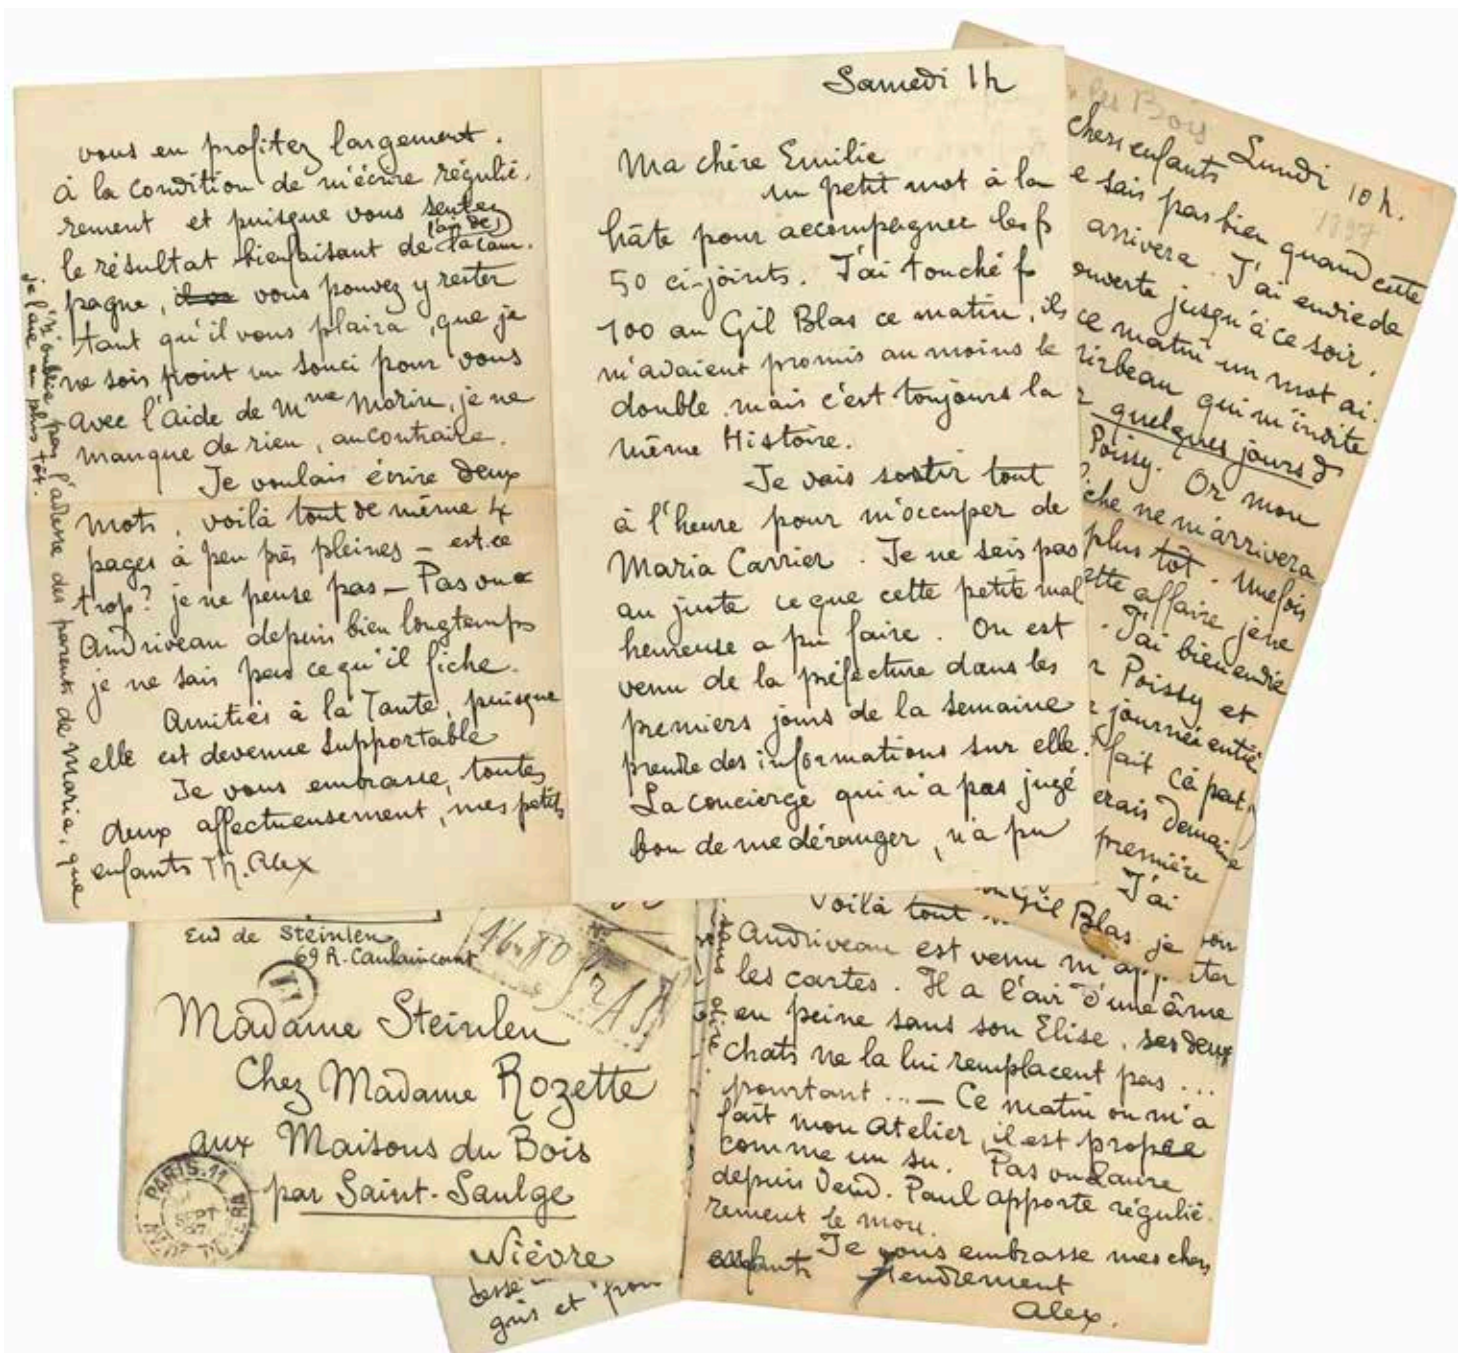 vous en profitez largement.
à la condition de m'écrire réguliè.
rement et puisque vous sentez
l'air de
le résultat bienfaisant de la cam.
pagne, vous pouvez y rester
tant qu'il vous plaira, que je
ne sois point un souci pour vous
avec l'aide de Mme Morin, je ne
manque de rien, au contraire.
Je voulais écrire deux
mots, voilà tout de même 4
pages à peu près pleines – est-ce
trop? je ne pense pas – Pas vu
Andriveau depuis bien longtemps
je ne sais pas ce qu'il fiche.
Amitiés à la Tante, puisque
elle est devenue supportable
Je vous embrasse, toutes
deux affectueusement, mes petits
enfants Th. Alex
N'oublie pas l'adresse des parents de Maria, que
je l'aie au plus tôt.
Samedi 1h
Ma chère Emilie
un petit mot à la
hâte pour accompagner les f
50 ci-joints. J'ai touché f
100 au Gil Blas ce matin, ils
m'avaient promis au moins le
double mais c'est toujours la
même Histoire.
Je vais sortir tout
à l'heure pour m'occuper de
Maria Carrier. Je ne sais pas
au juste ce que cette petite mal
heureuse a pu faire. On est
venu de la préfecture dans les
premiers jours de la semaine
prendre des informations sur elle.
La concierge qui n'a pas jugé
bon de me déranger, n'a pu
les Bois
Lundi 10 h.
1897
chers enfants
e sais pas bien quand cette
arrivera. J'ai envie de
ouverte jusqu'à ce soir.
ce matin un mot ai.
irbeau qui m'invite
quelques jours à
Poissy. Or mon
che ne m'arrivera
plus tôt. Une fois
tte affaire je ne
. J'ai bien envie
Poissy et
journée entiè
fait ça peut
erais demain
première
J'ai
Gil Blas je
Voilà tout
Andriveau est venu m'apporter
les cartes. Il a l'air d'une âme
en peine sans son Elise, ses deux
chats ne la lui remplacent pas...
pourtant ... – Ce matin on m'a
fait mon atelier, il est propre
comme un su. Pas vu Laure
depuis Vend. Paul apporte réguliè.
rement le mou.
Je vous embrasse mes chers
enfants tendrement
Alex.
sans
Env de Steinlen
69 R. Caulaincourt
Madame Steinlen
Chez Madame Rozette
aux Maisons du Bois
par Saint-Saulge
Nièvre
PARIS.11
SEPT
97
gris et pou